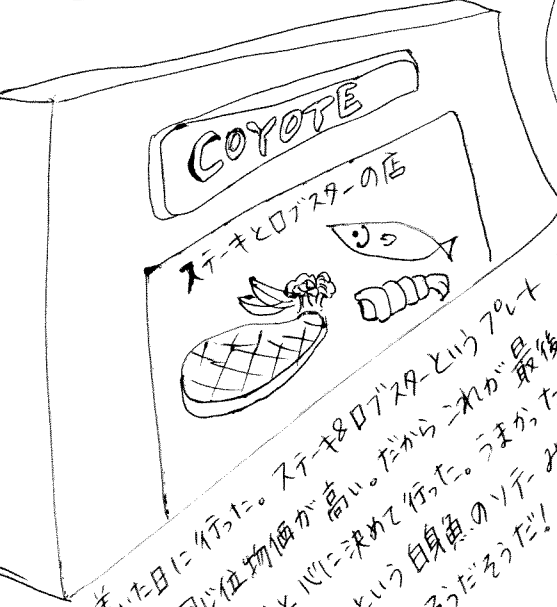 COYOTE
ステーキとロブスターの店
いた日に行った。ステーキ&ロブスターというプレート
同じ位物価が高い。だからこれが最後
と心に決めて行った。うまかった
という白身魚のソテー
そうだそうだ!